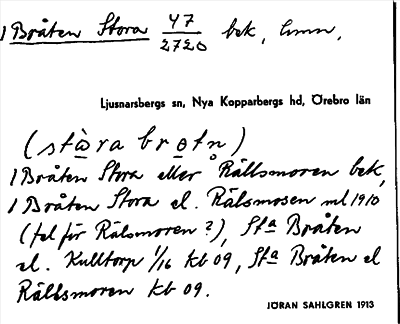 1 Bråten Stora 47/2720 bek, hmn,
Ljusnarsbergs sn, Nya Kopparbergs hd, Örebro län
(stàra brotn)
1 Bråten Stora eller Rållsmoren bek,
1 Bråten Stora el. Rålsmosen ml 1910
(fel för Rålsmoren?), Sta Bråten
el. Kulltorp 1/16 kb 09, Sta Bråten el
Rållsmoren kb 09.
JÖRAN SAHLGREN 1913